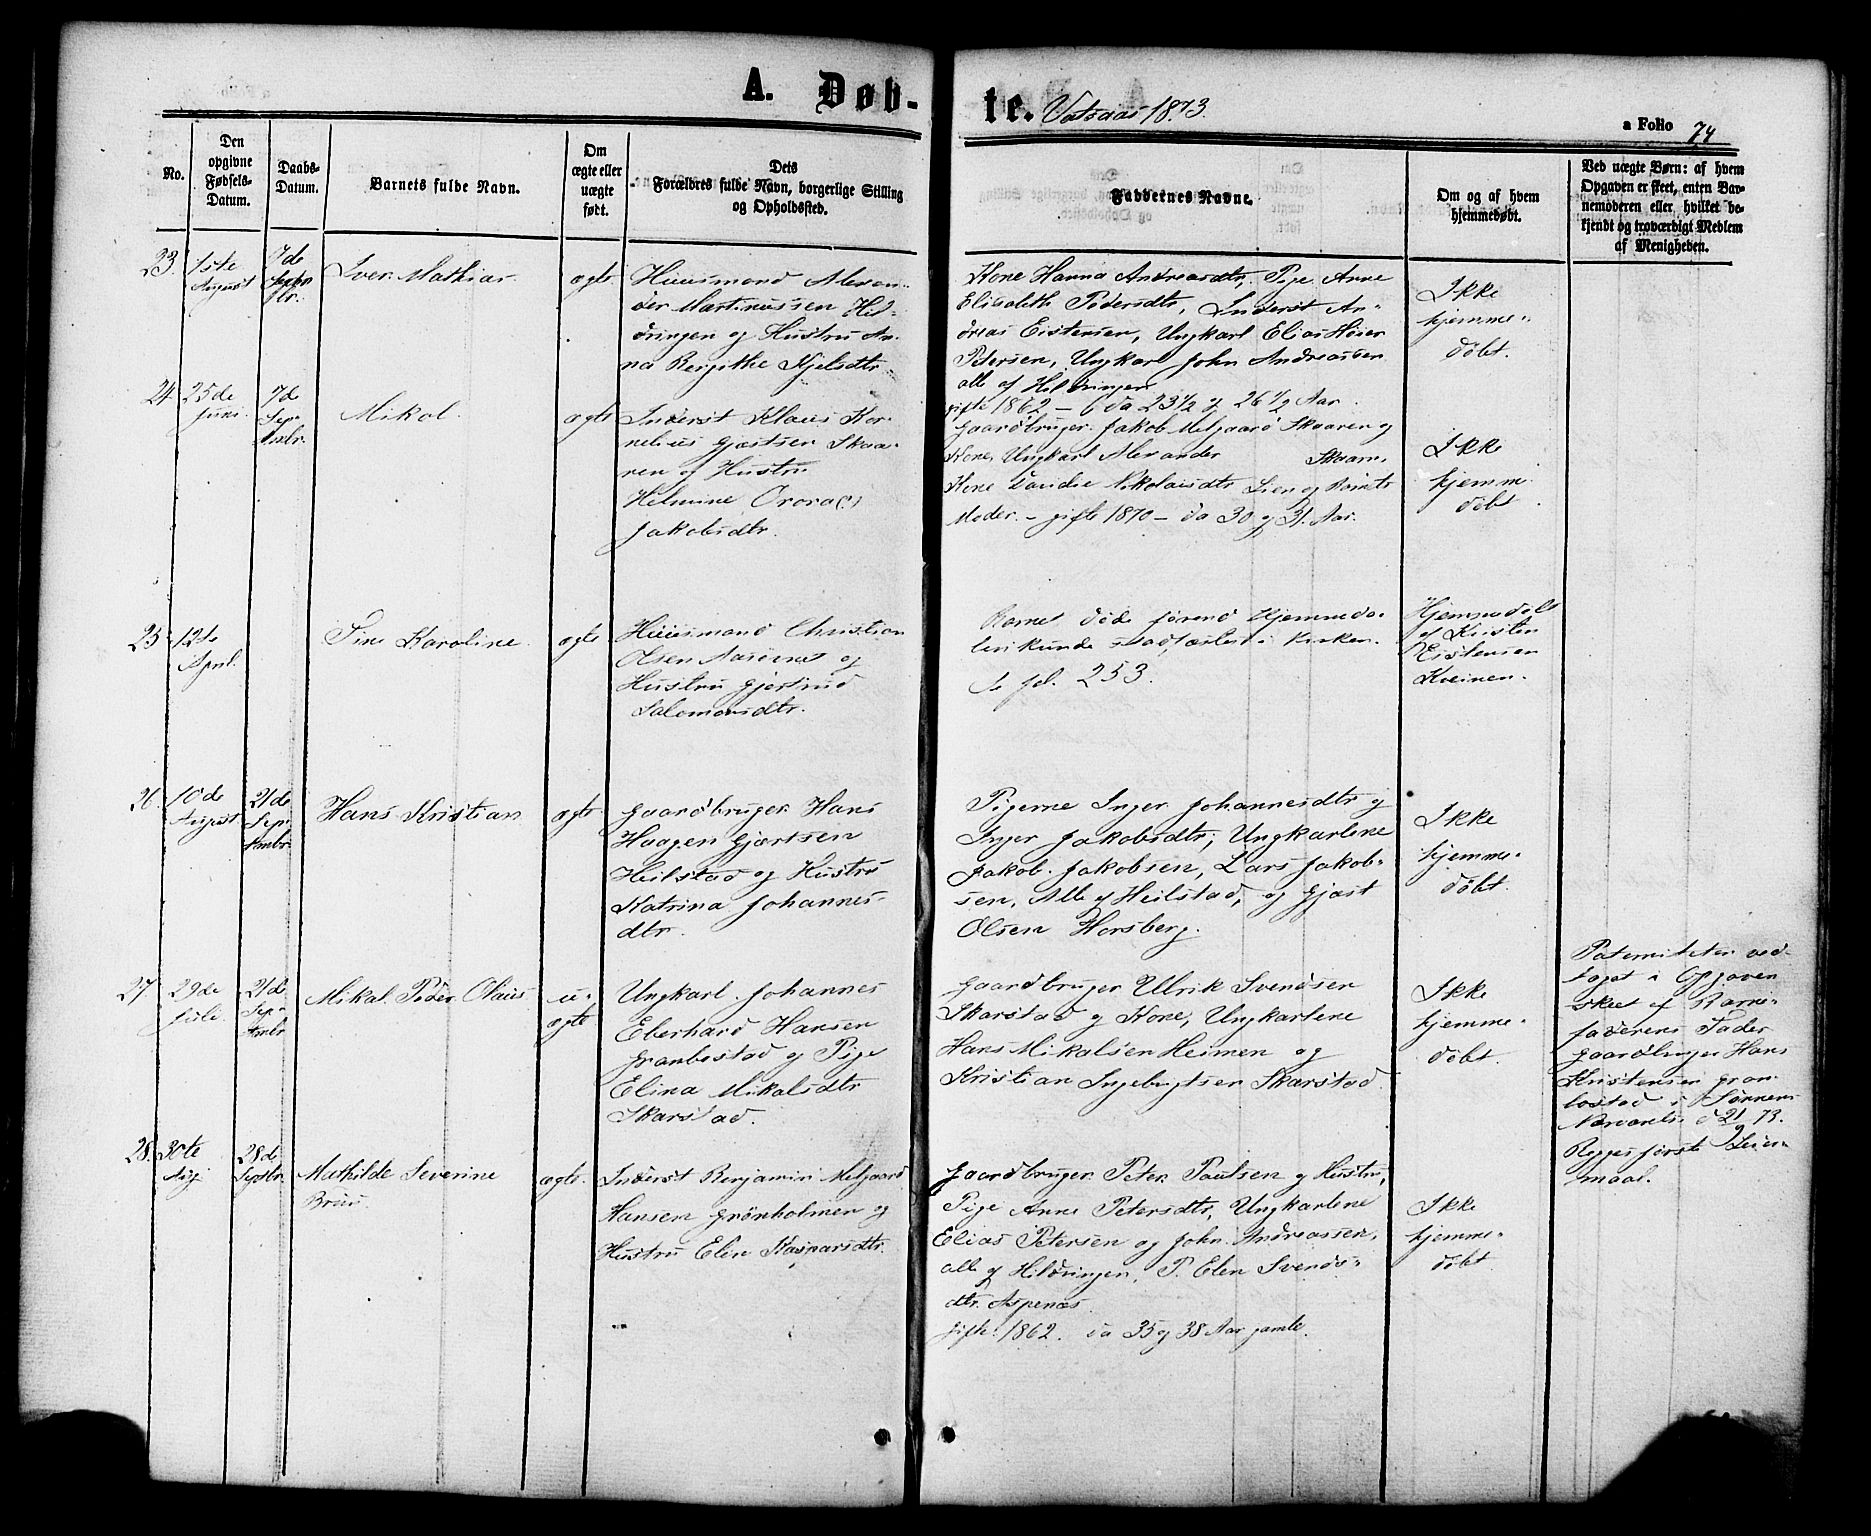 A. Døb-
te. Vatsaas 1873.
a Folio 74
No.
Den
opgivne
Fødsels-
Datum.
Daabs-
Datum.
Barnets fulde Navn.
Om
ægte eller
uægte
født.
Dets
Forældres fulde Navn, borgerlige Stilling
og Opholdssted.
Faddernes Navne.
Om og af hvem
hjemmedøbt.
Ved uægte Børn: af hvem
Opgaven er skeet, enten Bar-
nemoderen eller hvilket be-
kjendt og troværdigt Medlem
af Menigheden.
23.
1ste
August
7de
Septbr.
Iver Mathias
ægte
Huusmand Alexan-
der Martinussen Hil-
dringen og Hustru An-
na Bergithe Kjelsdtr
Kone Hanna Andreasdtr, Pige Anne
Elisabeth Pedersdtr, Inderst An-
dreas Eistensen, Ungkarl Elias Høier
Petersen, Ungkarl John Andreassen
alle af Hildringen
gifte 1862 - da 23 1/2 og 26 1/2 Aar.
Ikke
hjemme-
døbt.
24
25de
Juni.
7d
Sep-
tmbr.
Mikal
ægte
Inderst Klaus Kor-
nelius Gjertsen Skaa-
ren og Hustru
Helmine Orora(?)
Jakobsdtr.
Gaardbruger Jakob Melgaard Skaaren og
Kone, Ungkarl Alexander Skaarn,
Kone Nikolaisdtr Lien og Barnets
Moder. - gifte 1870 - da 30 og 31 Aar.
Ikke
hjemm.
døbt
25
12te
April.
Tine Karoline
ægte
Huusmand Christian
Olsen og
Hustru Gjertrud
Salomonsdtr.
Barnet døde førend Hjemmeda-
ben kunde stadfæstes i Kirken.
fol. 253.
Hjemmedøbt
af Kristen
Eistensen
Kveinen.
26
10de
August
21de
Sep-
tmbr.
Hans Kristian
ægte
Gaardbruger Hans
Haagen Gjertsen
Heilstad og Hustru
Katrina Johannes-
dtr.
Pigerne Inger Johannesdtr og
Inger Jakobsdtr, Ungkarlene
Jakob Jakobsen, Lars Jakob-
sen, Alle af Heilstad, og Gjert
Olsen Horsberg.
Ikke
hjemme-
døbt.
27
29de
Juli.
21de
Sep-
tmbr
Mikal Peder Olaus
u-
ægte
Ungkarl Johannes
Eberhard Hansen
Granbostad og Pige
Elina Mikalsdtr
Skarstad.
Gaardbruger Ulrik Svendsen
Skarstad og Kone, Ungkarlene
Hans Mikalsen Heimen og
Kristian Ingebrigtsen Skarstad.
Ikke
hjemme-
døbt.
Paterniteten ved-
taget i Opgaven
skeet af Barne-
faderens Fader
Gaardbruger Hans
Kristensen Gran-
bostad i Sønnens
Nærværelse d 21/9 73.
Begges første Leier-
maal.
28.
30te
Aug
28de
Septbr.
Mathilde Severine
Bruu
ægte.
Inderst Benjamin Melgaard
Hansen Grønholmen og
Hustru Elen Kasparsdtr.
Gaardbruger Peter Paulsen og Hustru,
Pige Anne Petersdtr, Ungkarlene
Elias Petersen og John Andreassen,
alle af Hildringen, P. Elen Svends-
dtr. Aspenæs.
gifte 1862. da 35 og 38 Aar gamle.
Ikke
hjemme-
døbt